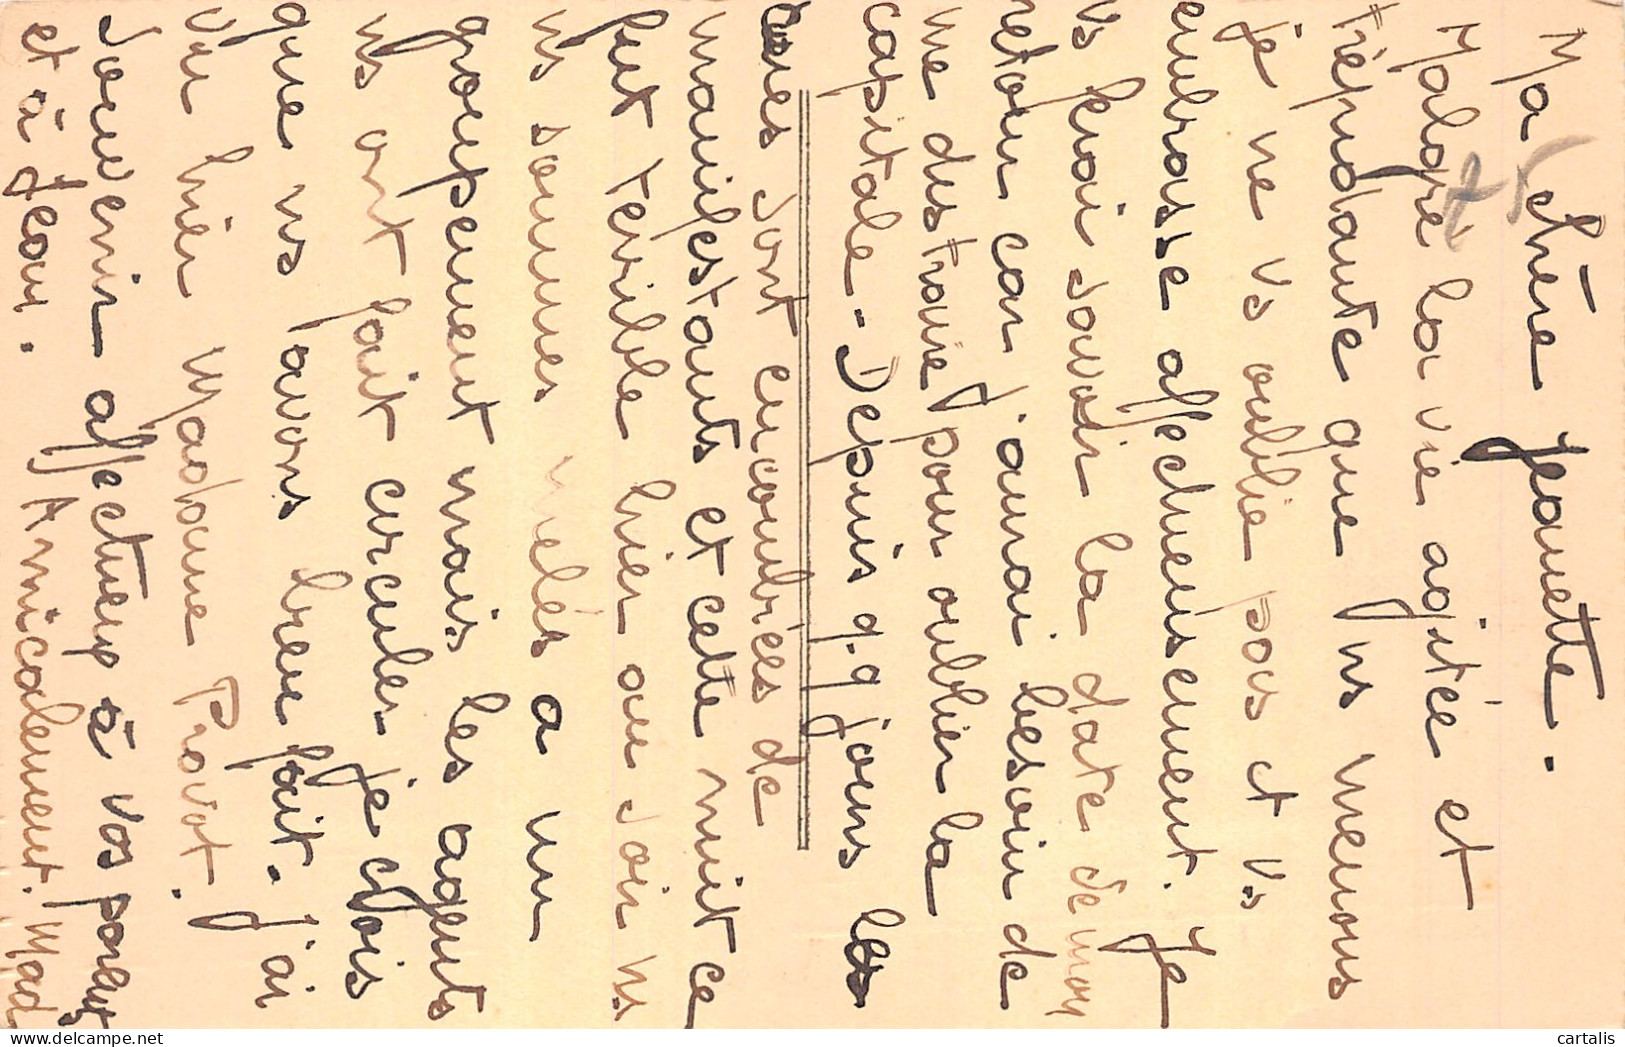 Ma chère Jeanette.
Malgré la vie agitée et
trépidante que ns menons
je ne vs oublie pas et vs
embrasse affectueusement. Je
vs ferai savoir la date de mon
retour car j'aurai besoin de
me distraire pour oublier la
capitale - Depuis q.q jours les
rues sont encombrées de
manifestants et cette nuit ce
fut terrible hier au soir ns
ns sommes mêlés a un
groupement mais les agents
ns ont fait circuler je crois
que ns avons bien fait. j'ai
vu hier Madame Provot.
Souvenir affectueux à vos parents
et à Jean. Amicalement. Mad
cartalis